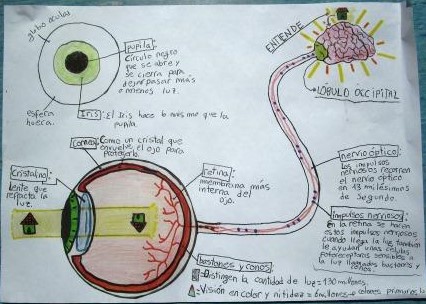 globo ocular
pupila:
Círculo negro
que se abre y
se cierra para
dejar pasar más
o menos luz.
esfera
hueca.
Iris: El Iris hace lo mismo que la
pupila.
ENTIENDE
LÓBULO OCCIPITAL
Cornea: Como un cristal que
envuelve el ojo para
protegerlo.
Cristalino:
Lente que
refracta la
luz.
retina:
membrana más
interna del
ojo.
nervio óptico:
Los impulsos
nerviosos recorren
el nervio óptico
en 13 milésimas
de segundo.
impulsos nerviosos:
En la retina se hacen
estos impulsos nerviosos
cuando llega la luz también
le ayudan unas células
fotoreceptoras sensibles a
la luz llamadas bastones y
conos.
bastones y conos:
=Distingen la cantidad de luz=130 millones.
=Visión en color y nitidez=6 millones→colores primarios, la